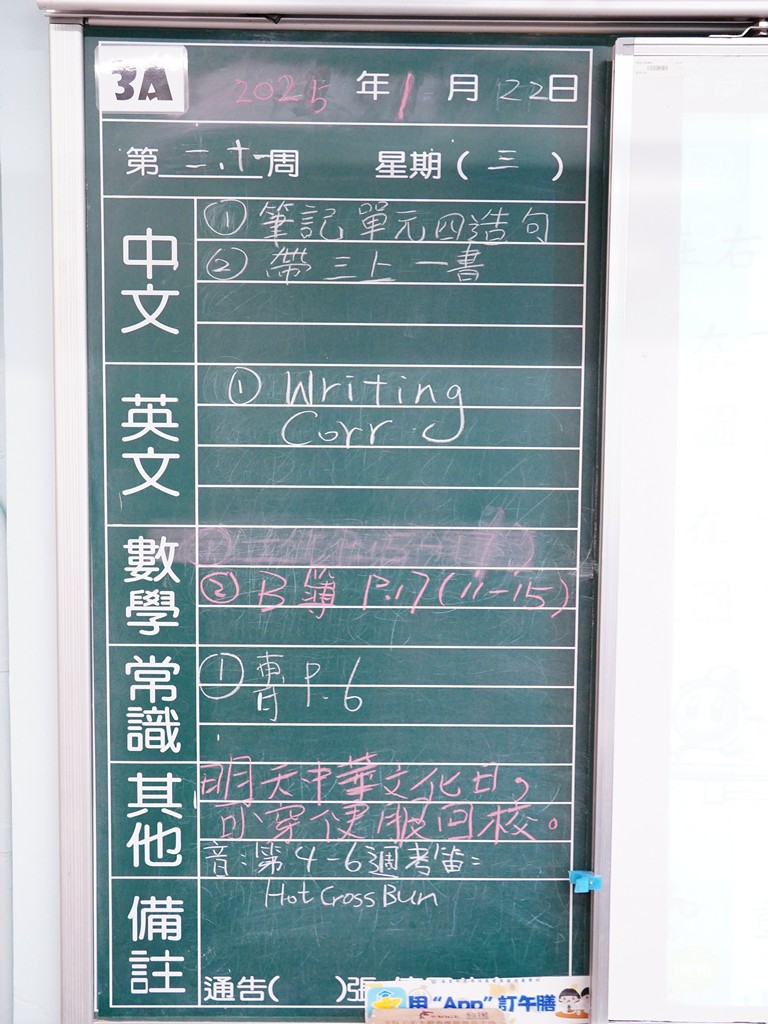 3A
2025 年 1 月 22 日
第 二十一 周 星期 ( 三 )
中文
① 筆記 單元四造句
② 帶三上一書
英文
① Writing
Corr.
數學
② B 簿 P.17 (11-15)
常識
① 專 P.6
其他
明天中華文化日,
可穿便服回校。
音:第4-6週考笛:
備註
Hot Cross Bun
通告( )張
用 “App” 訂午膳